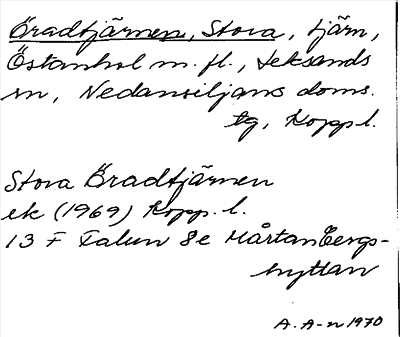 Bradtjärnen, Stora, tjärn,
Östanhol m. fl., Leksands
sn, Nedansiljans doms.
tg, Kopp l.
Stora Bradtjärnen
ek (1969) Kopp. l.
13 F Falun 8e Mårtanbergs-
hyttan
A. A-n 1970